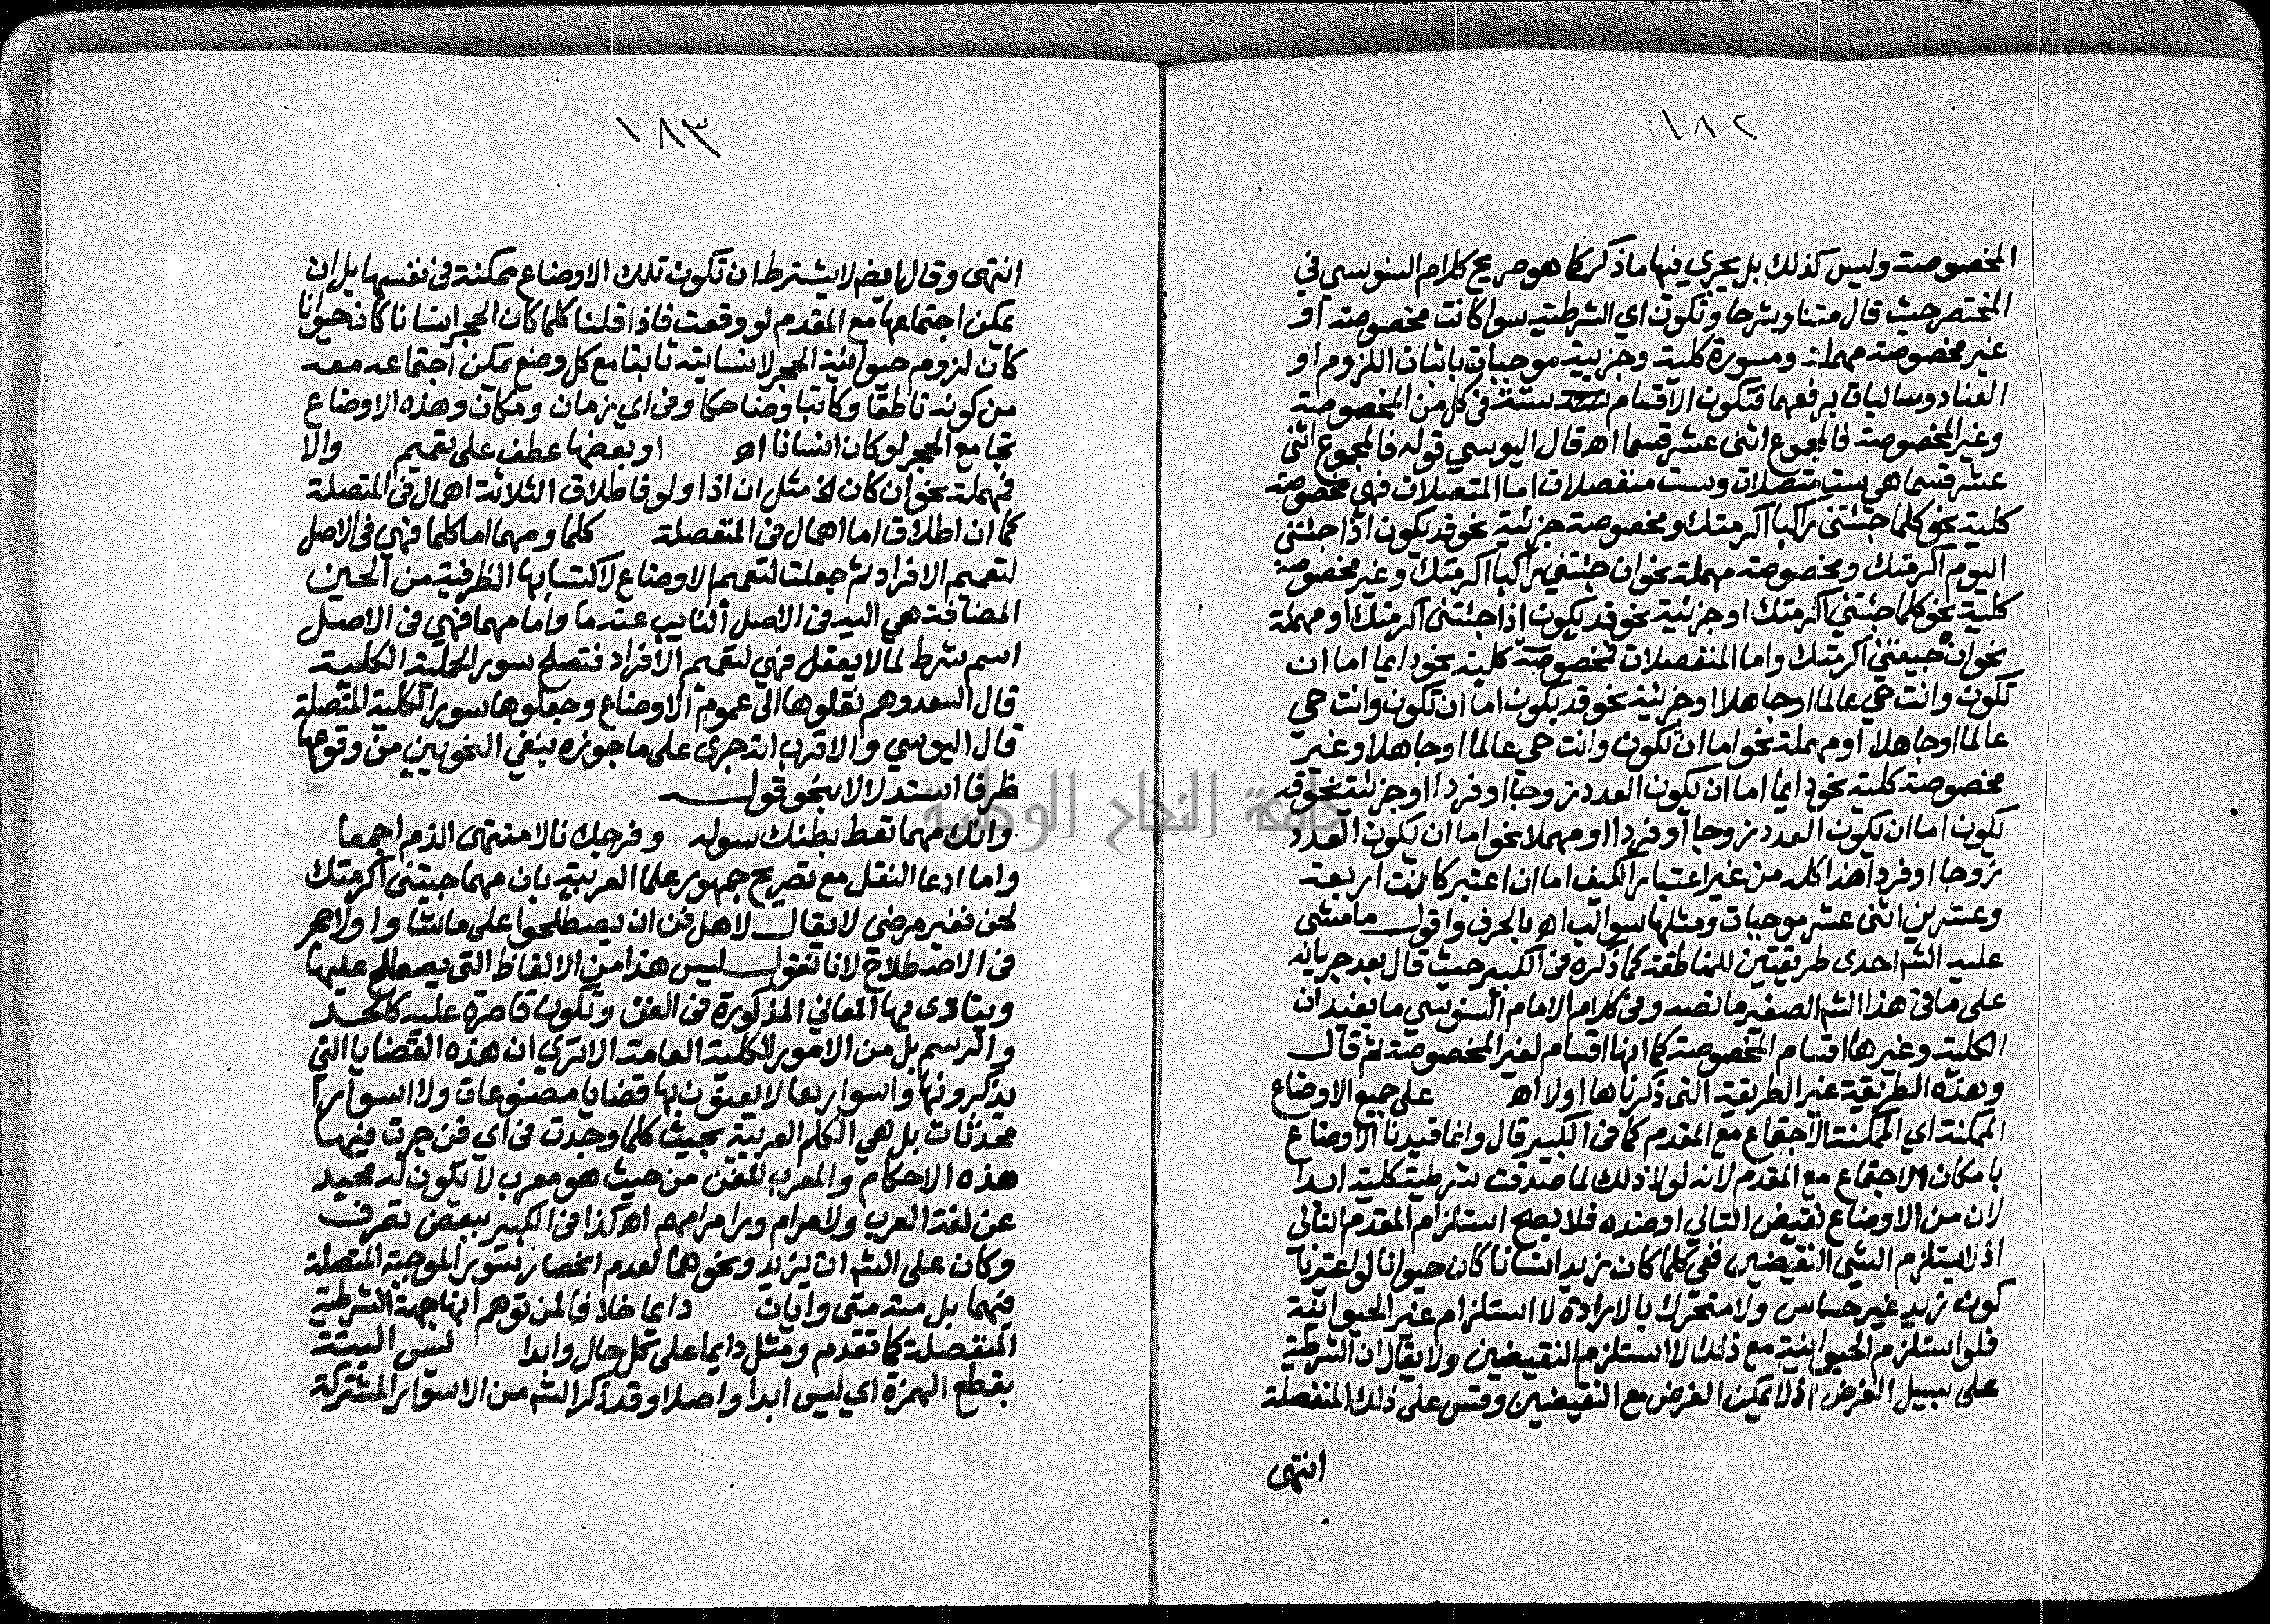 ١٨٢
المخصوصة وليس كذلك بل يجري فيها ما ذكر كما هو صريح كلام السنوسي في
المختصر حيث قال متنا وشرحا وتكون اي الشرطية سوا كانت مخصوصة او
غير مخصوصة مهملة ومسورة كلية وجزيية موجبات باثبات اللزوم او
العناد وسالبات برفعهما فتكون الاقسام ستة في كل من المخصوصة
وغير المخصوصة فالمجموع اثنى عشر قسما اهـ قال اليوسي قوله فالمجموع اثنى
عشر قسما هي ست متصلات وست منفصلات اما المتصلات فهي مخصوصة
كلية نحو كلما جئتني راكبا اكرمتك ومخصوصة جزئية نحو قد يكون اذا جئتني
اليوم اكرمتك ومخصوصة مهملة نحو ان جئتني راكبا اكرمتك وغير مخصوصة
كلية نحو كلما جئتني اكرمتك او جزئية نحو قد يكون اذا جئتني اكرمتك او مهملة
نحو ان جيتني اكرمتك واما المنفصلات فمخصوصة كلية نحو دايما اما ان
تكون وانت حي عالما او جاهلا او جزئية نحو قد يكون اما ان تكون وانت حي
عالما او جاهلا او مهملة نحو اما ان تكون وانت حي عالما او جاهلا وغير
مخصوصة كلية نحو دايما اما ان يكون العدد زوجا او فردا او جزئية نحو قد
يكون اما ان يكون العدد زوجا او فردا او مهملا نحو اما ان يكون العدد
زوجا او فردا هذا كله من غير اعتبار الكيف اما ان اعتبر كانت اربعة
وعشرين اثنى عشر موجبات ومثلها سوالب اهـ بالحرف واقول ما مشى
عليه الشم احدى طريقتين للمناطقة كما ذكره في الكبير حيث قال بعد جريانه
على ما في هذا الشم الصغير ما نصه وفي كلام الامام السنوسي ما يفيد ان
الكلية وغيرها اقسام المخصوصة كما انها اقسام لغير المخصوصة ثم قال
وهذه الطريقة غير الطريقة التي ذكرناها اولا اهـ على جميع الاوضاع
الممكنة اي الممكنة الاجتماع مع المقدم كما في الكبير قال وانما قيدنا الاوضاع
بامكان الاجتماع مع المقدم لانه لولا ذلك لما صدقت شرطية كلية ابدا
لان من الاوضاع نقيض التالي او ضده فلا يصح استلزام المقدم التالي
اذ لا يستلزم الشيئ النقيضين ففي كلما كان زيد انسانا كان حيوانا لو اعتبرنا
كون زيد غير حساس ولا متحرك بالارادة لا استلزام عنر الحيوانية
فلو استلزم الحيوانية مع ذلك لا استلزم النقيضين ولا يقال ان الشرطية
على سبيل الفرض اذ لا يمكن الفرض مع النقيضين وقس على ذلك المنفصلة
انتهى
١٨٣
انتهى وقال ايضم لا يشترط ان تكون تلك الاوضاع ممكنة في نفسها بل ان
يمكن اجتماعها مع المقدم لو وقعت فاذا قلنا كلما كان الحجر انسانا كان حيوانا
كان لزوم حيوانية الحجر لانسانيته ثابتا مع كل وضع يمكن اجتماعه معه
من كونه ناطقا وكاتبا وضاحكا وفي اي زمان ومكان وهذه الاوضاع
تجامع الحجر لو كان انسانا اهـ او بعضها عطف على تعميم والا
فمهملة نحو ان كان الخ مثل ان اذا ولو فاطلاق الثلاثة اهمال في المتصلة
كما ان اطلاق اما اهمال في المنفصلة كلما ومهما اما كلما فهي في الاصل
لتعميم الافراد ثم جعلت لتعميم الاوضاع لاكتسابها الظرفية من الحين
المضافة هي اليه في الاصل النايب عنه ما واما مهما فهي في الاصل
اسم شرط لما لا يعقل فهي لتعميم الافراد فتصلح سور الحملية الكلية
قال السعد وهم نقلوها الى عموم الاوضاع وجعلوها سور الكلية المتصلة
قال اليوسي والاقرب انه جرى على ما جوزه بعض النحويين من وقوعها
ظرفا استدلالا بنحو قوله
وانك مهما تعط بطنك سوله وفرجك نالا منتهى الذم اجمعا
واما ادعا النقل مع تصريح جمهور علما العربية بان مهما جيتني اكرمتك
لحن فغير مرضي لا يقال لاهل فن ان يصطلحوا على ما شاوا ولا حجر
في الاصطلاح لانا نقول ليس هذا من الالفاظ التي يصطلح عليها
ويتادى بها المعاني المذكورة في الفن وتكون قاصرة عليه كالحد
والرسم بل من الامور الكلية العامة الا ترى ان هذه القضايا التي
يذكرونها واسوارها لا يعنون بها قضايا مصنوعات ولا اسوارا
محدثات بل هي الكلم العربية بحيث كلما وجدت في اي فن جرت فيها
هذه الاحكام والمعرب للفن من حيث هو معرب لا يكون له محيد
عن لغة العرب ولا مرام ورا مرامهم اهـ كذا في الكبير ببعض تصرف
وكان على الشم ان يزيد ونحوهما لعدم انحصار سور الموجبة المتصلة
فيهما بل منه متى وايان دايما خلافا لمن توهم انها جهة الشرطية
المنفصلة كما تقدم ومثل دايما على كل حال وابدا ليس البتة
بقطع الهمزة اي ليس ابدا واصلا وقد ذكر الشم من الاسوار المشتركة
جامعة النجاح الوطنية